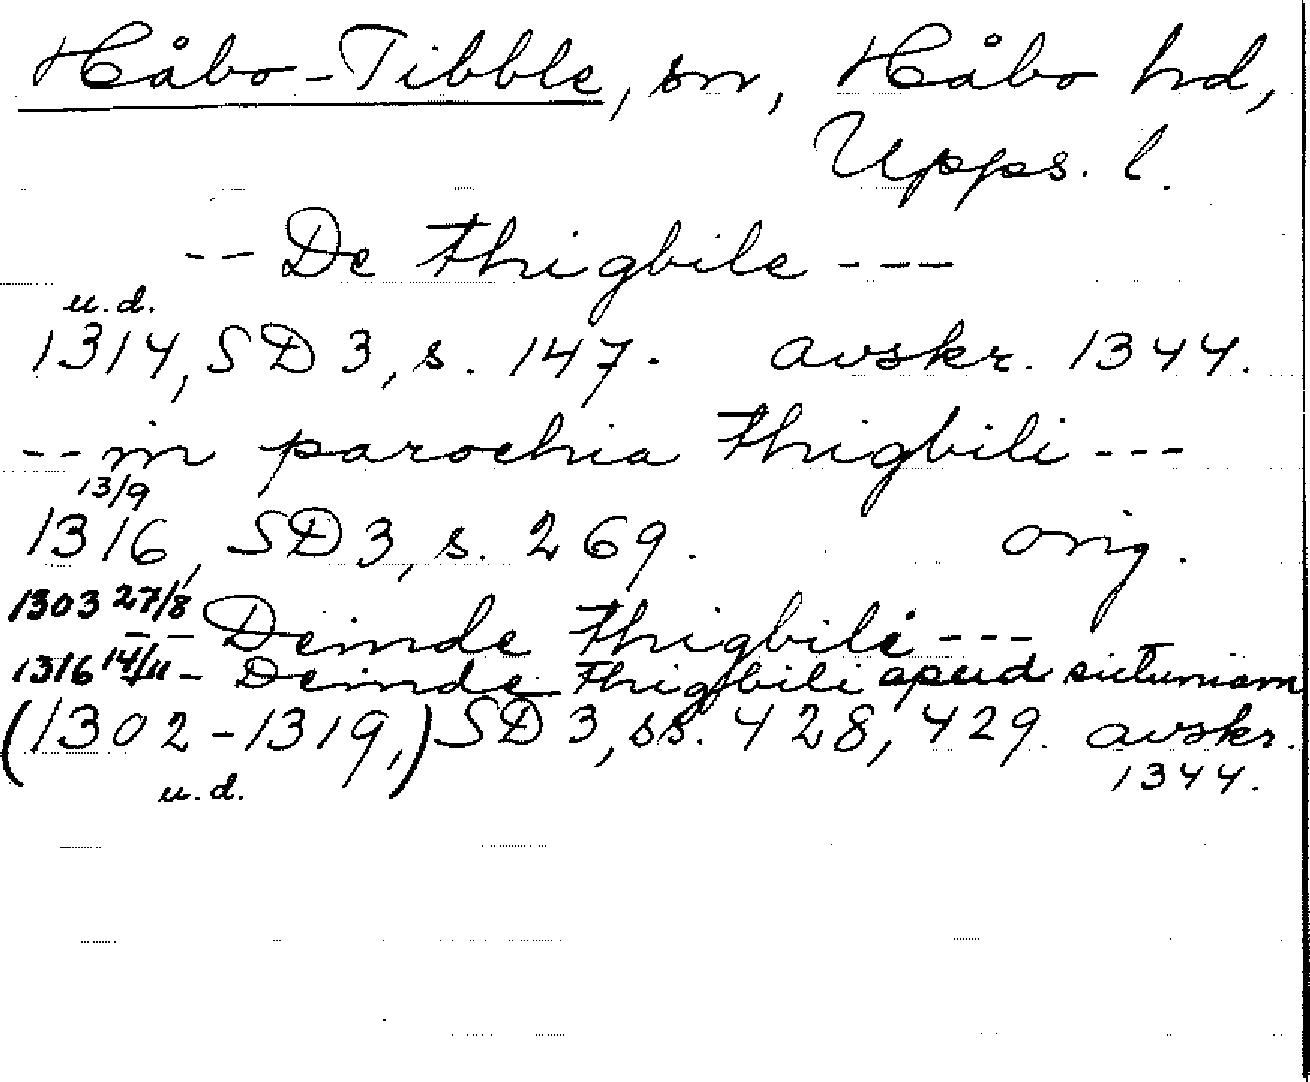 Håbo-Tibble, sn, Håbo hd,
Upps. l.
-- De Thigbile ---
u.d.
1314, SD 3, s. 147. avskr. 1344.
-- in parochia Thigbili ---
13/9
1316, SD 3, s. 269. orig.
1303 27/8
-- Deinde Thigbili ---
1316 14/11 - Deinde Thigbili apud sictuniam
(1302-1319,) SD 3, ss. 428, 429. avskr.
u.d. 1344.